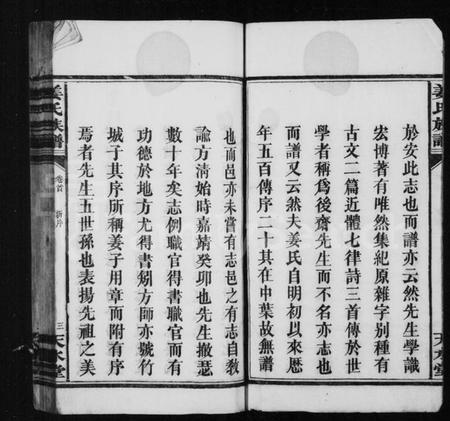 姜氏族譜
天水堂
於安此志也而譜亦云然先生學識
宏博著有唯然集紀原雜字別種有
古文二篇近體七律詩三首傳於世
學者稱爲後齋先生而不名亦志也
而譜又云然夫姜氏自明初以來歷
年五百傳序二十其在中葉故無譜
也而邑亦未嘗有志邑之有志自教
諭方清始時嘉靖癸卯也先生撤瑟
數十年矣志例職官得書職官而有
功德於地方尤得書矧方師亦號竹
城子其序所稱姜子用章而附有序
焉者先生五世孫也表揚先祖之美
姜氏族譜
卷首
新序
三
天水堂